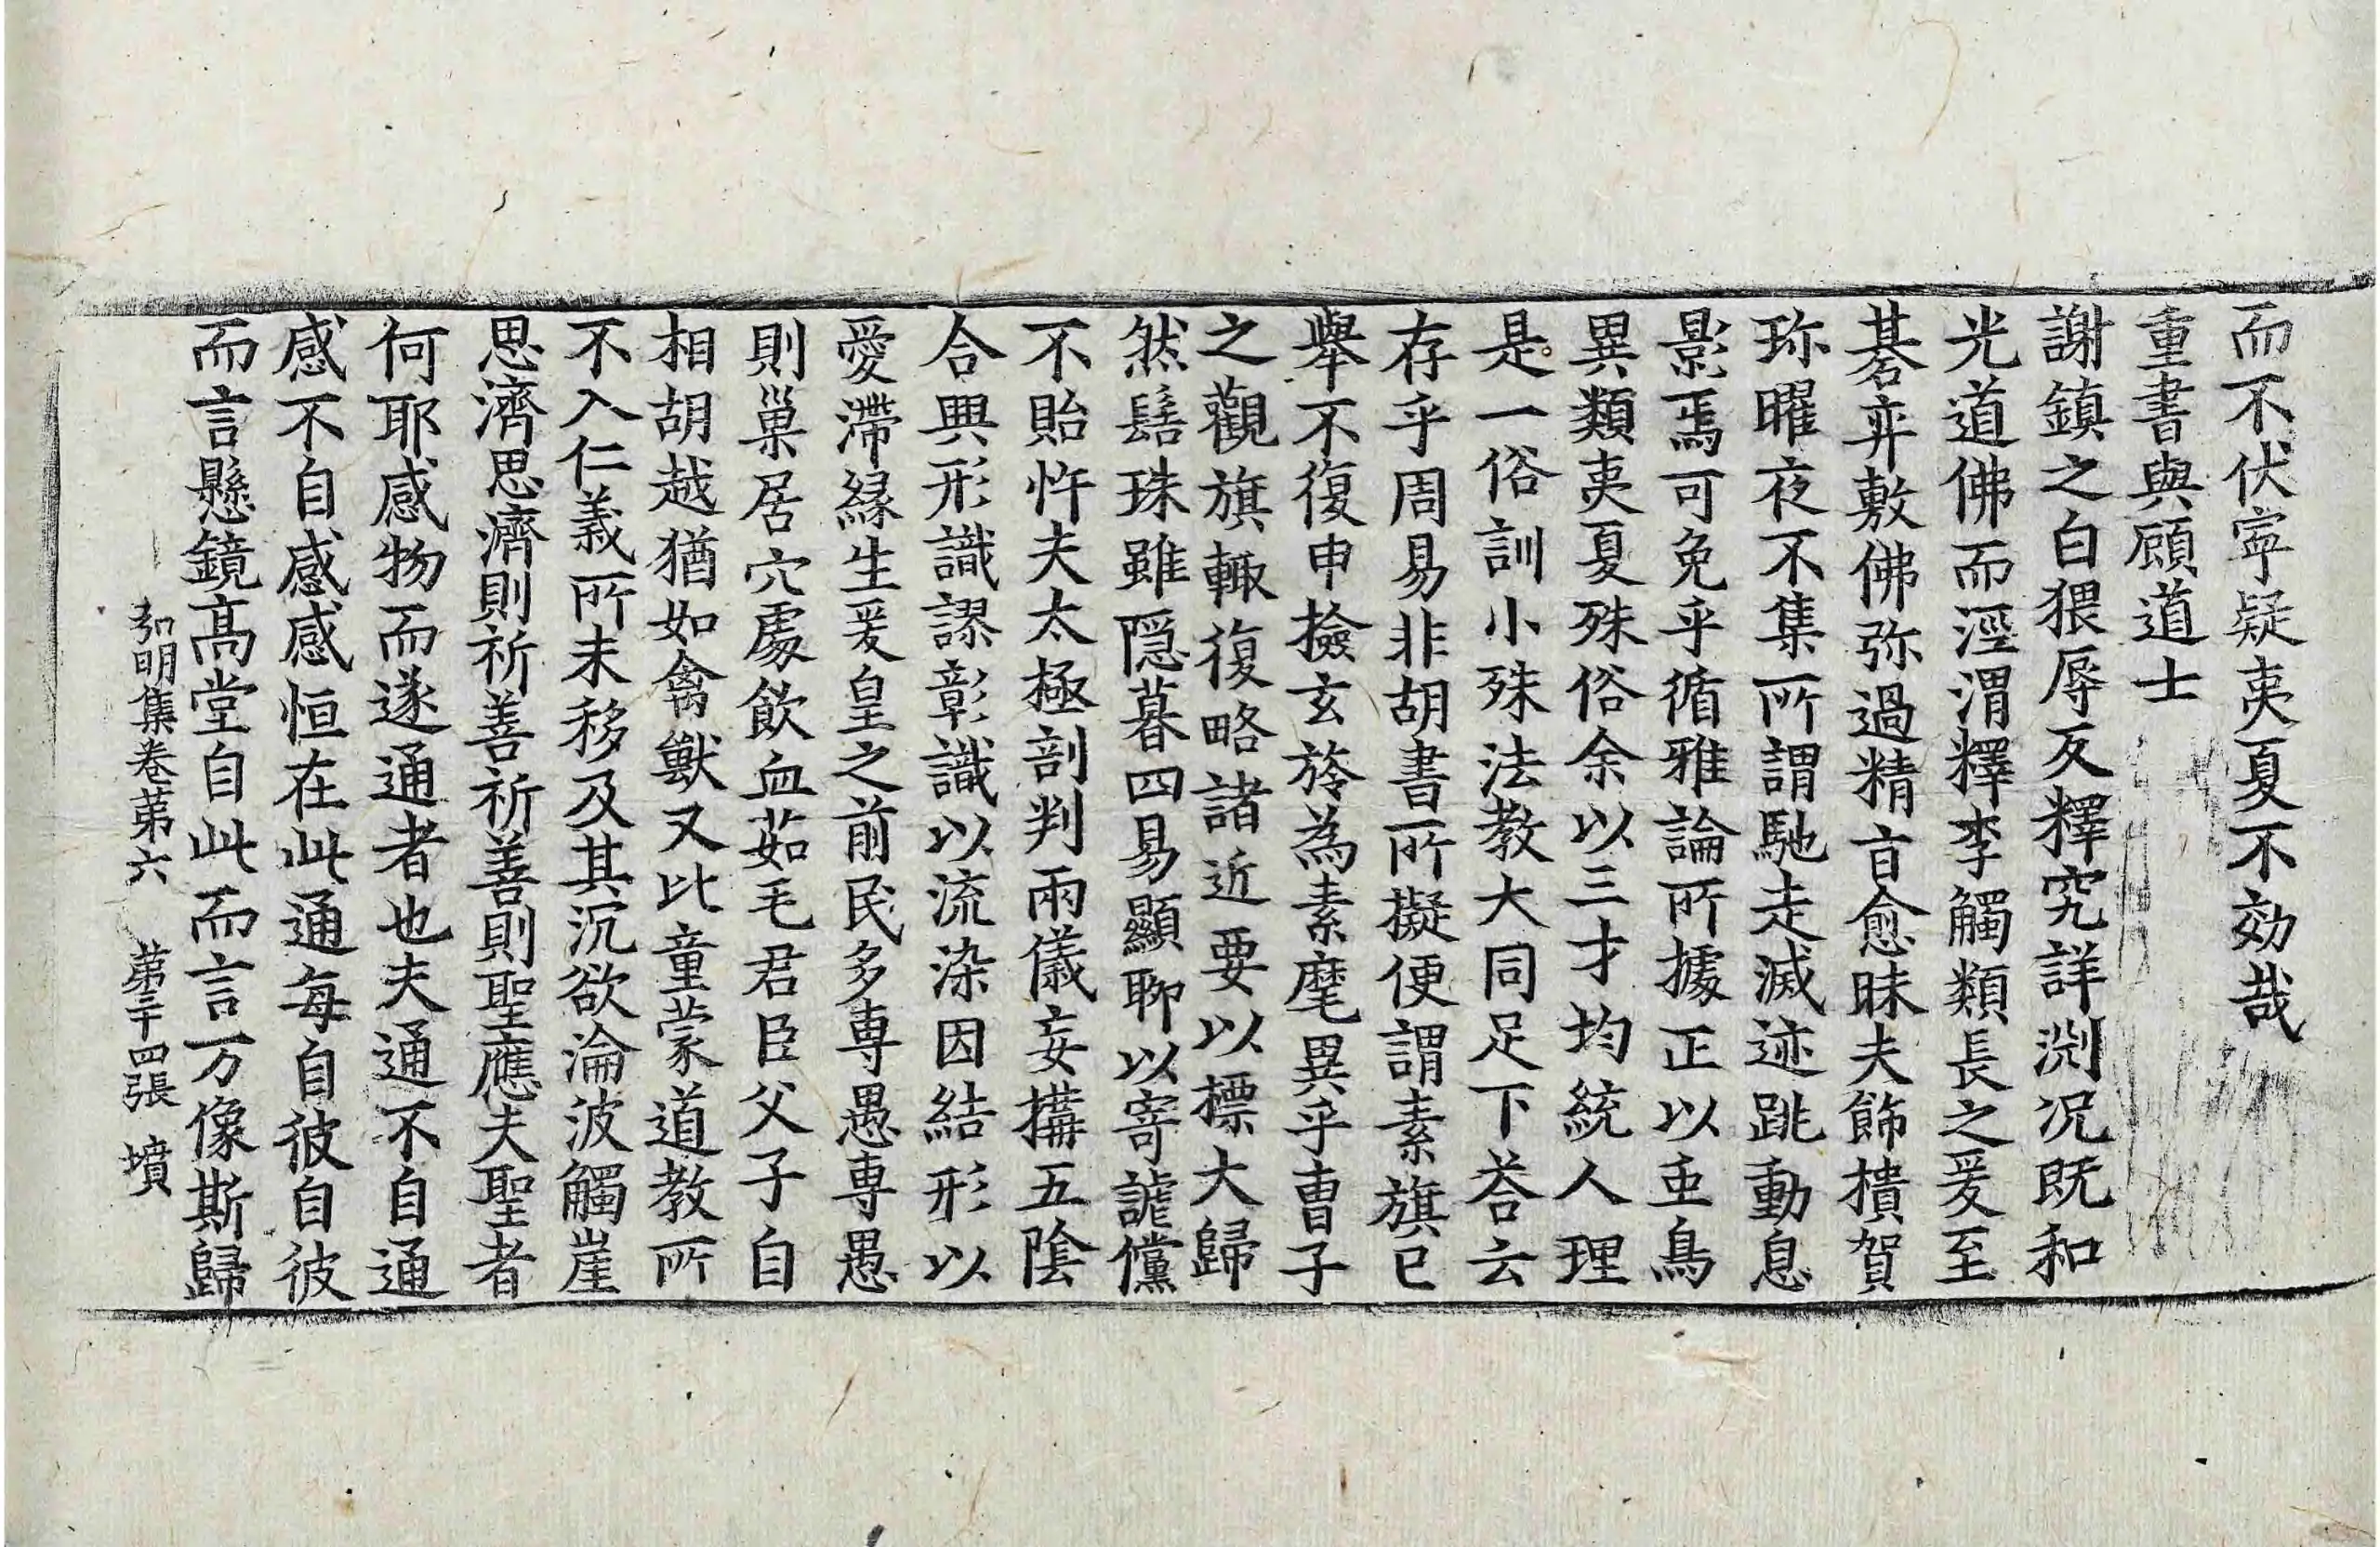 而不伏寧疑夷夏不効哉
重書與顧道士
謝鎮之白猥辱反釋究詳渕况既和
光道佛而涇渭釋李觸類長之爰至
棊弈敷佛弥過精旨愈昧夫飾櫝賀
珎曜夜不集所謂馳走滅迹跳動息
影焉可免乎循雅論所據正以𠀧鳥
異類夷夏殊俗余以三才均統人理
是一俗訓小殊法教大同足下荅云
存乎周易非胡書所擬便謂素旗已
舉不復申撿玄旍為素麾異乎曺子
之觀旗輙復略諸近要以標大歸
然髻珠雖隠暮四易顯聊以寄謔儻
不貽忤夫太極剖判兩儀妄搆五陰
合興形識謬彰識以流染因結形以
愛滯緣生爰皇之前民多専愚専愚
則巢居穴處飲血茹毛君臣父子自
相胡越猶如禽獸又比童蒙道教所
不入仁義所未移及其沉欲淪波觸崖
思濟思濟則祈善祈善則聖應夫聖者
何耶感物而遂通者也夫通不自通
感不自感感恒在此通每自彼自彼
而言懸鏡高堂自此而言万像斯歸
弘明集卷苐六 苐二十四張 墳